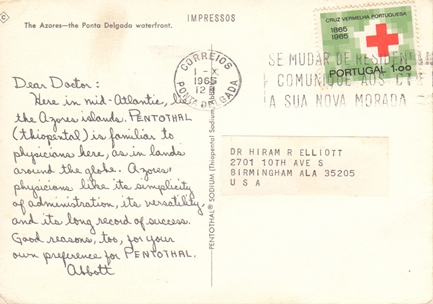 The Azores—the Ponta Delgada waterfront.
IMPRESSOS
CRUZ VERMELHA PORTUGUESA
1865
1965
PORTUGAL 1$00
CORREIOS
1-X
1965
12
PONTA DELGADA
SE MUDAR DE RESIDENCIA
COMUNIQUE AOS CTT
A SUA NOVA MORADA
Dear Doctor:
Here in mid-Atlantic, lie
the Azores islands. PENTOTHAL
(thiopental) is familiar to
physicians here, as in lands
around the globe. Azores
physicians like its simplicity
of administration, its versatility,
and its long record of success.
Good reasons, too, for your
own preference for PENTOTHAL.
Abbott
PENTOTHAL® SODIUM (Thiopental Sodium,
DR HIRAM R ELLIOTT
2701 10TH AVE S
BIRMINGHAM ALA 35205
U S A